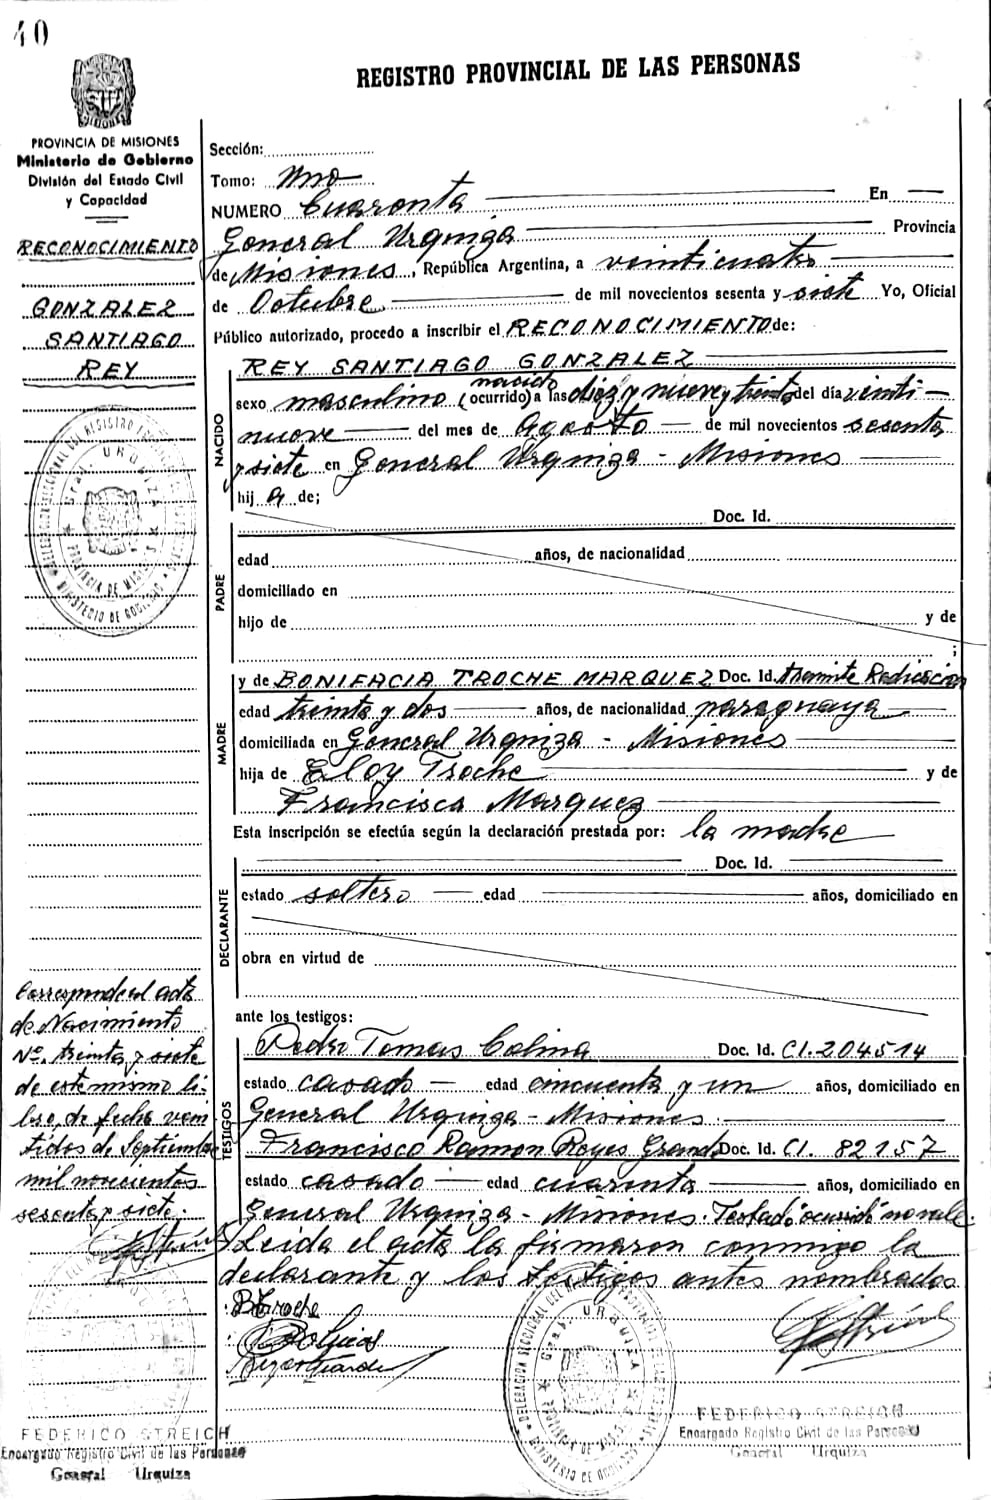 40
REGISTRO PROVINCIAL DE LAS PERSONAS
PROVINCIA DE MISIONES
Ministerio de Gobierno
División del Estado Civil
y Capacidad
RECONOCIMIENTO
GONZALEZ
SANTIAGO
REY
Sección:
Tomo: Uno
NUMERO Cuarenta En
General Urquiza Provincia
de Misiones, República Argentina, a veinticuatro
de Octubre de mil novecientos sesenta y siete Yo, Oficial
Público autorizado, procedo a inscribir el RECONOCIMIENTO de:
NACIDO
REY SANTIAGO GONZALEZ
nacido
sexo masculino (ocurrido) a las diez y nueve y treinta del día veinti-
nueve del mes de Agosto de mil novecientos sesenta
y siete en General Urquiza - Misiones
hij a de;
PADRE
Doc. Id.
edad años, de nacionalidad
domiciliado en
hijo de y de
;
MADRE
y de BONIFACIA TROCHE MARQUEZ Doc. Id. tramite Radicación
edad treinta y dos años, de nacionalidad paraguaya
domiciliada en General Urquiza - Misiones
hija de Eloy Troche y de
Francisca Marquez
Esta inscripción se efectúa según la declaración prestada por: la madre
DECLARANTE
Doc. Id.
estado soltero edad años, domiciliado en
obra en virtud de
ante los testigos:
TESTIGOS
Pedro Tomas Colina Doc. Id. CI. 204514
estado casado edad cincuenta y un años, domiciliado en
General Urquiza - Misiones.
Francisco Ramon Reyes Grande Doc. Id. CI. 82157
estado casado edad cuarenta años, domiciliado en
General Urquiza - Misiones. Testado "ocurrido" no vale.
Leida el acta la firmaron conmigo la
declarante y los testigos antes nombrados
B Troche
Corresponde al acta
de Nacimiento
Nº. treinta y siete
de este mismo li-
bro, de fecha vein
tidos de Septiembre
mil novecientos
sesenta y siete.
DELEGACION SECCIONAL DEL REGISTRO PROVINCIAL DE LAS PERSONAS
Gral. URQUIZA
PROVINCIA DE MISIONES
MINISTERIO DE GOBIERNO
FEDERICO STREICH
Encargado Registro Civil de las Personas
General Urquiza
FEDERICO STREICH
Encargado Registro Civil de las Personas
General Urquiza